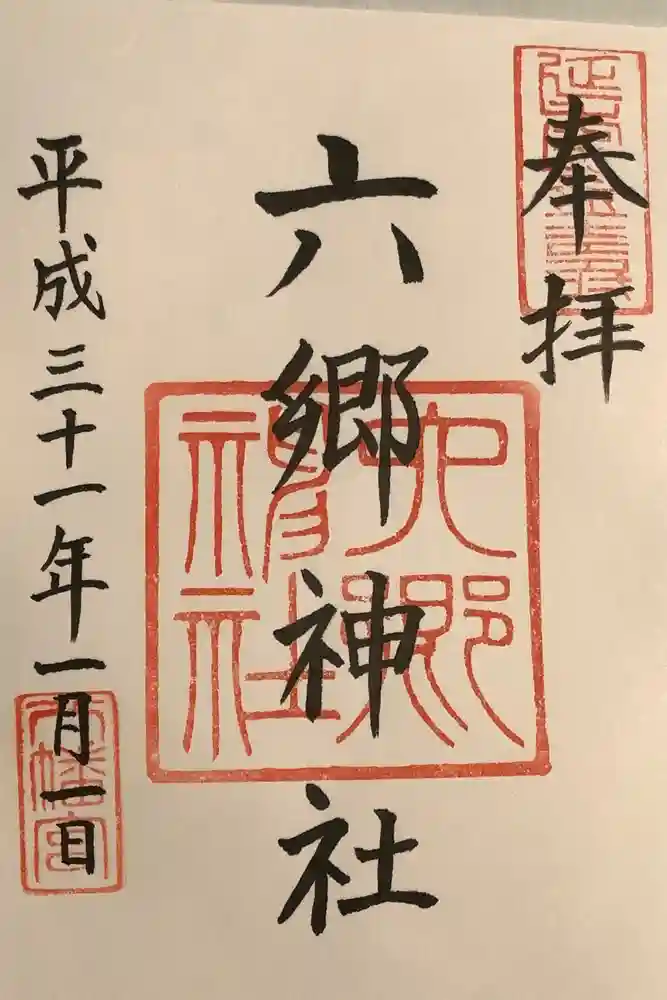 奉拝
六郷神社
平成三十一年一月一日
六郷
神社
八幡宮